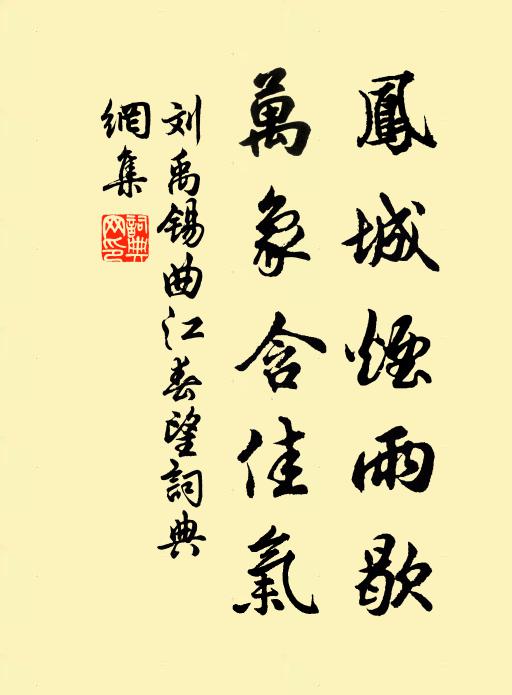 鳳城煙雨歇
萬象含佳氣
刘禹錫曲江春望詞典
網集
詞典網印